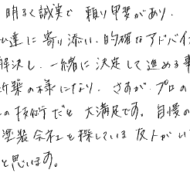 明るく誠実で 頼り甲斐があり、
私達に寄り添い、的確なアドバイ
解決し、一緒に決定して進める事
新築の様になり、さすが、プロの
の技術だと 大満足です。自慢の
塗装会社を探している友人がい
と思います。